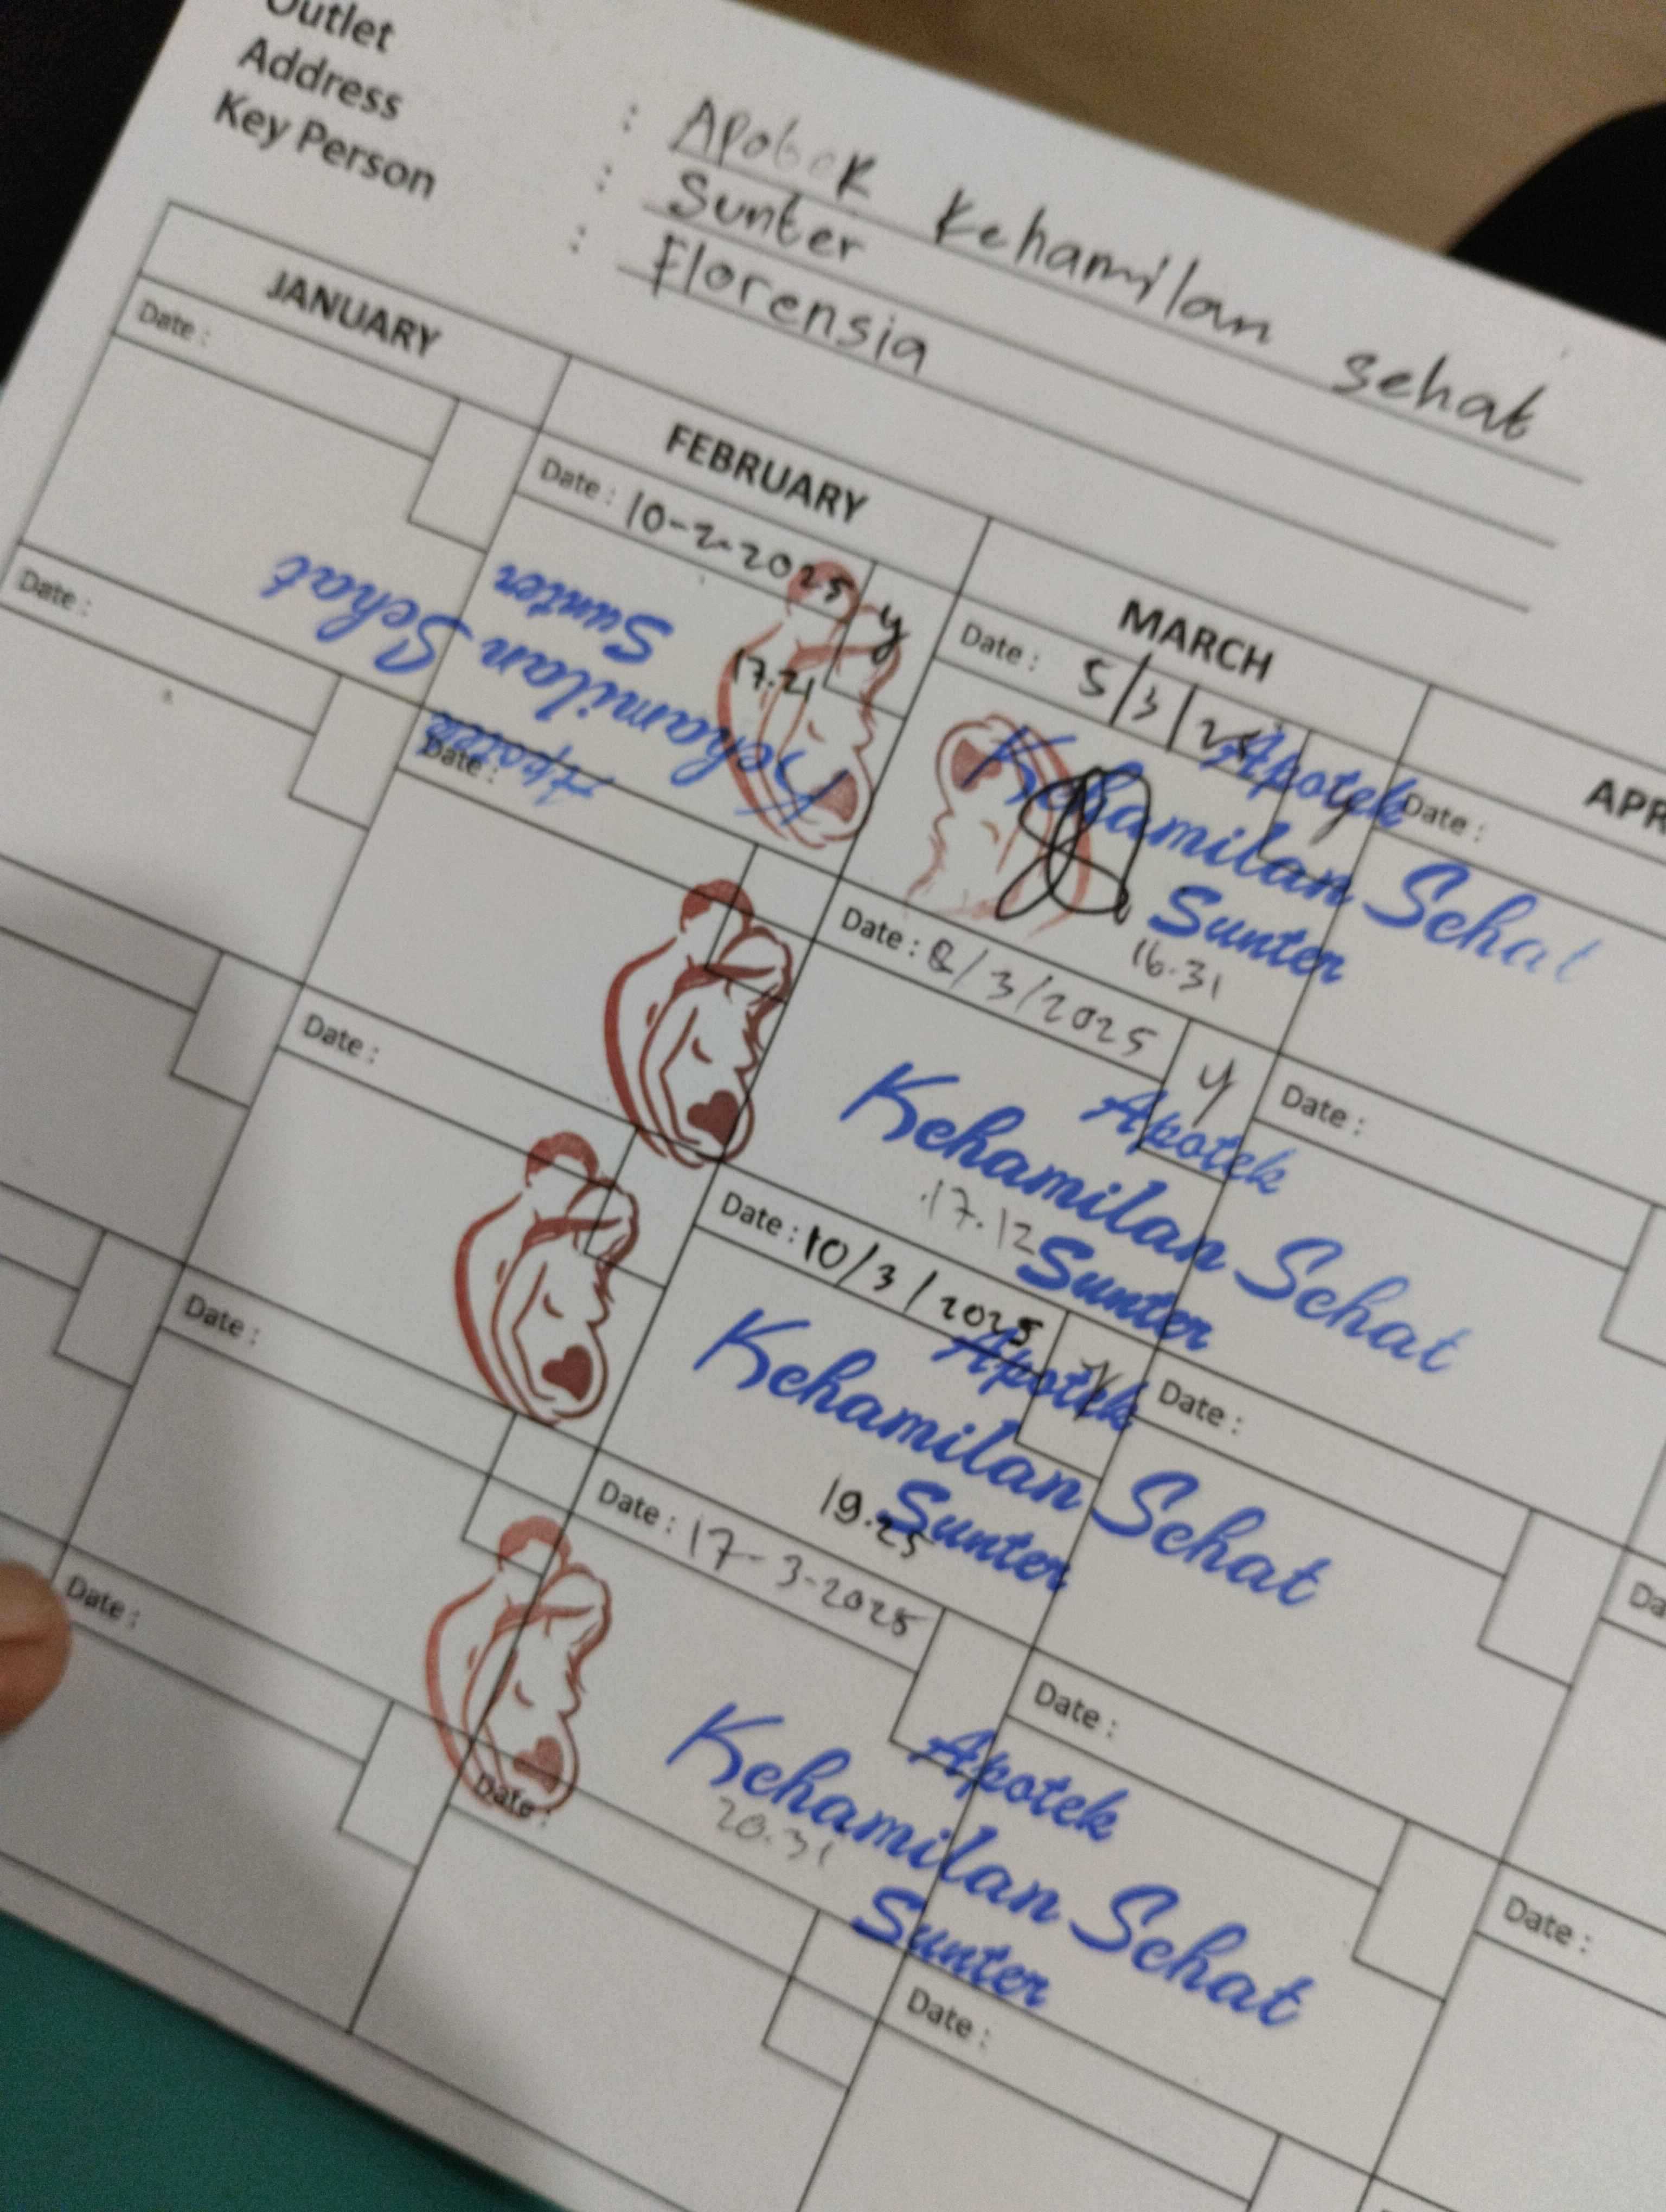 Outlet : Apotek Kehamilan sehat
Address : Sunter
Key Person : Florensia
JANUARY
Date :
Date :
FEBRUARY
Date : 10-2-2025 y
17.21
Apotek
Kehamilan Sehat
Sunter
Date :
Date :
Date :
Date :
Date :
MARCH
Date : 5/3/25 y
Apotek
Kehamilan Sehat
Sunter
16.31
Date : 8/3/2025 y
Apotek
Kehamilan Sehat
17.12 Sunter
Date : 10/3/2025 y
Apotek
Kehamilan Sehat
19.25 Sunter
Date : 17-3-2025
Apotek
Kehamilan Sehat
20.31
Sunter
Date :
APR
Date :
Date :
Date :
Date :
Date :
Da